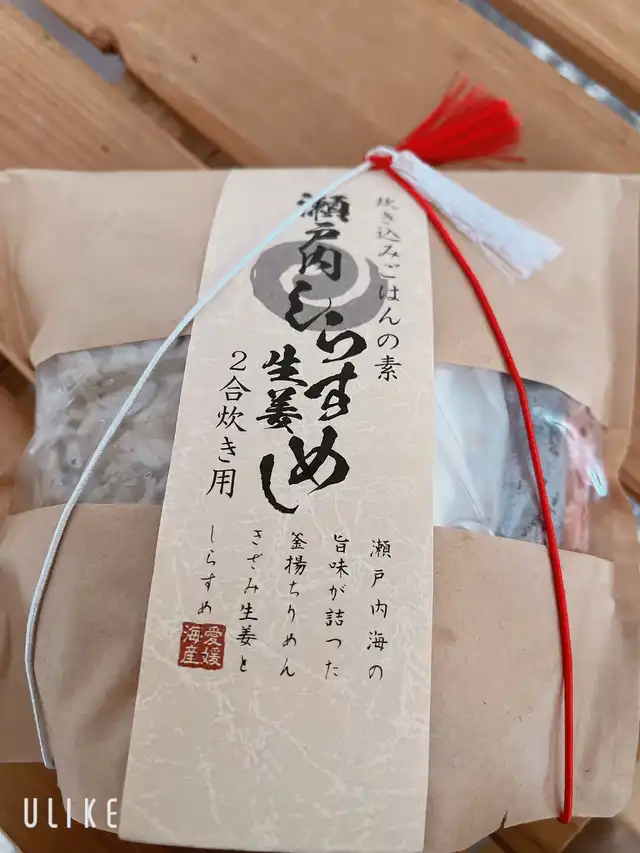 炊き込みごはんの素
瀬戸内しらす
生姜めし
2合炊き用
瀬戸内海の
旨味が詰った
釜揚ちりめん
きざみ生姜と
しらすめ
愛媛
海産
ULIKE